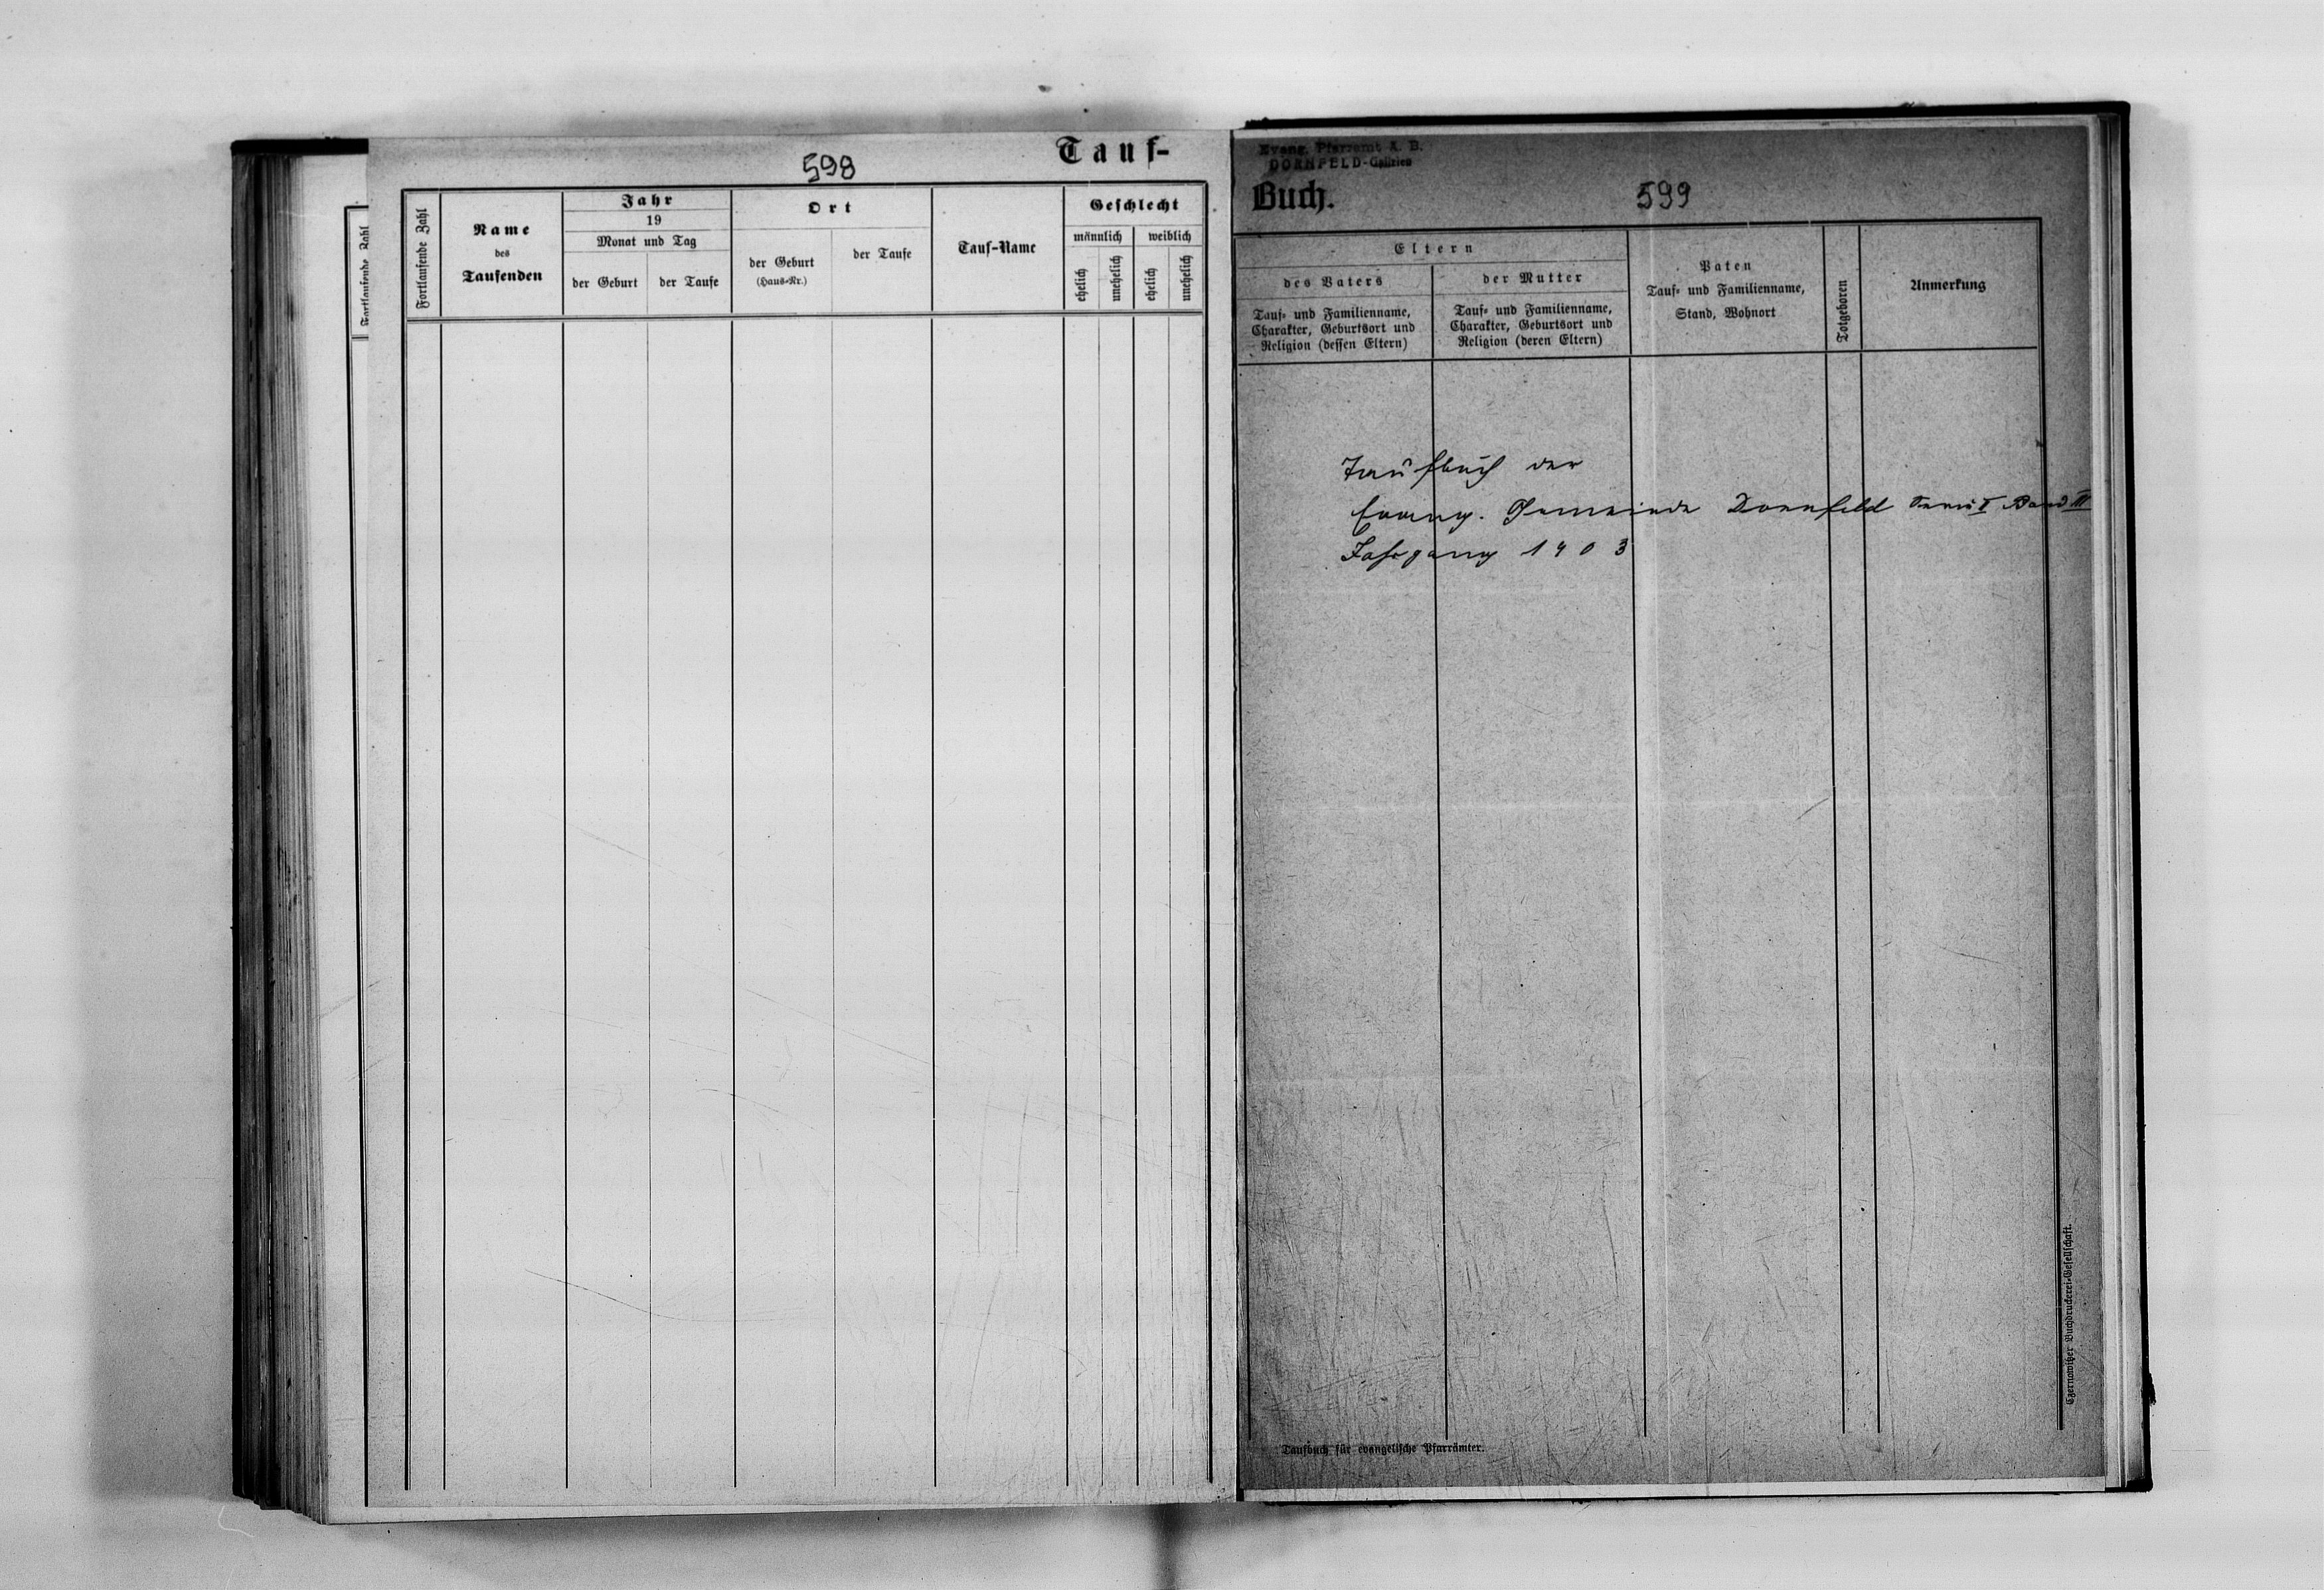 598
Tauf-
Fortlaufende Zahl
Fortlaufende Zahl
Name
des
Taufenden
Jahr
19
Monat und Tag
der Geburt
der Taufe
Ort
der Geburt
(Haus-Nr.)
der Taufe
Tauf-Name
Geschlecht
männlich
weiblich
ehelich
unehelich
ehelich
unehelich
Evang. Pfarramt A. B.
DORNFELD-Galizien
Buch.
599
Eltern
des Vaters
Tauf- und Familienname,
Charakter, Geburtsort und
Religion (dessen Eltern)
der Mutter
Tauf- und Familienname,
Charakter, Geburtsort und
Religion (deren Eltern)
Paten
Tauf- und Familienname,
Stand, Wohnort
Totgeboren
Anmerkung
Taufbuch der
Evang. Gemeinde Dornfeld Band III
Jahrgang 1903
Czernowitzer Buchdruckerei-Gesellschaft.
Taufbuch für evangelische Pfarrämter.